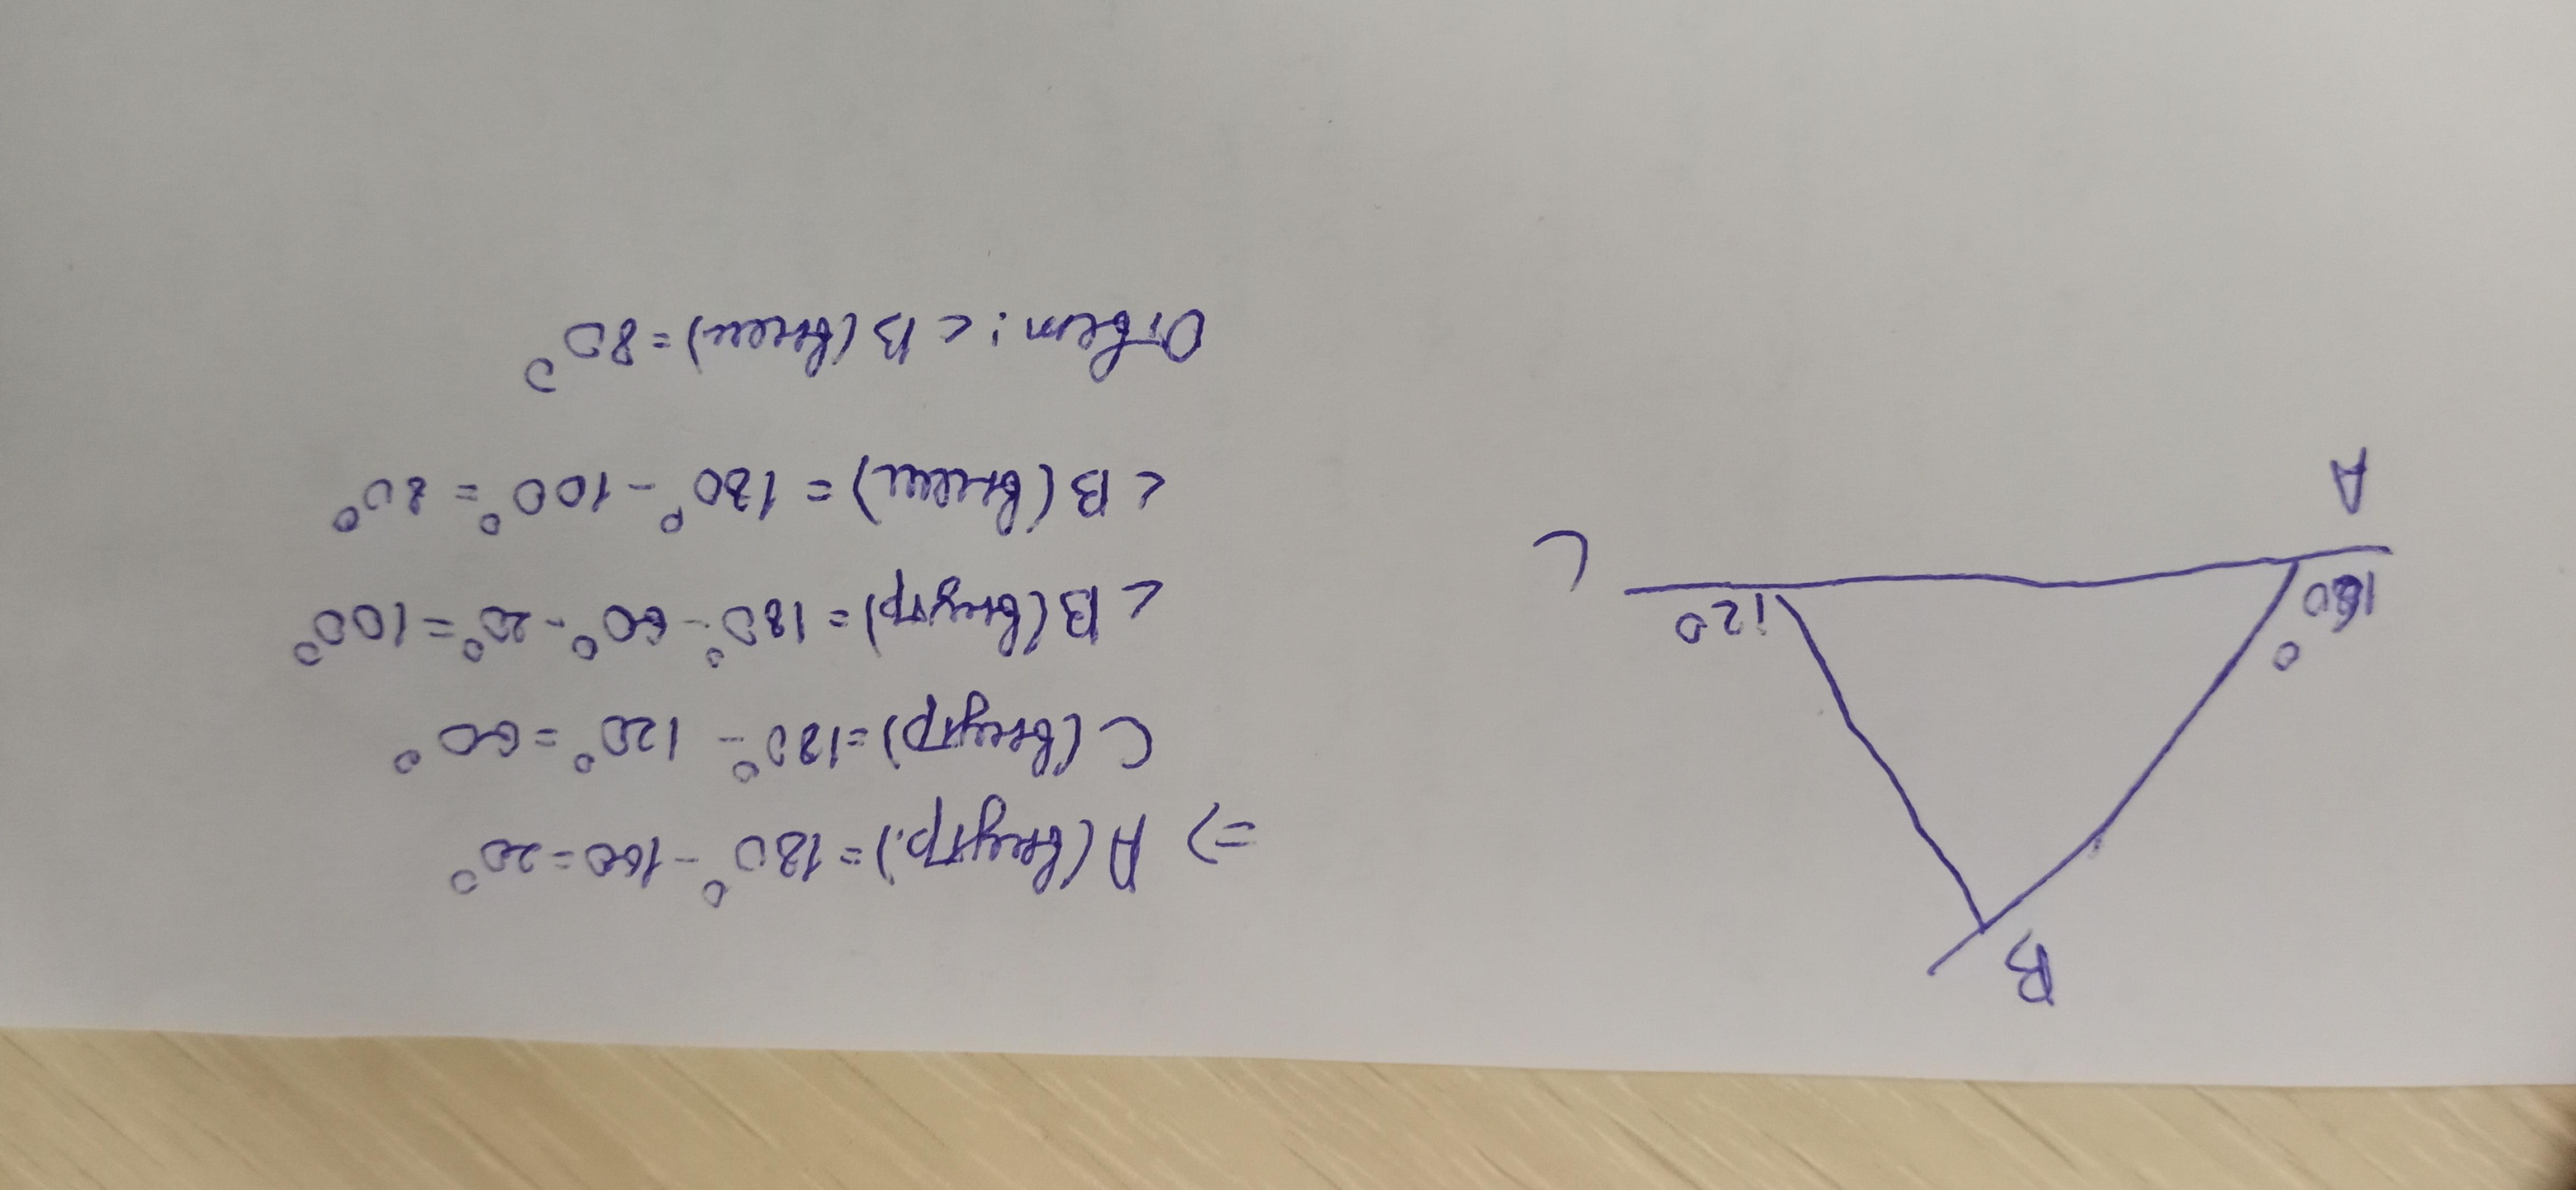 B
160°
A
120
C
=> A (внутр.) = 180° - 160 = 20°
C (внутр) = 180° - 120° = 60°
< B (внутр) = 180° - 60° - 20° = 100°
< B (внеш) = 180° - 100° = 80°
Ответ: < B (внеш) = 80°